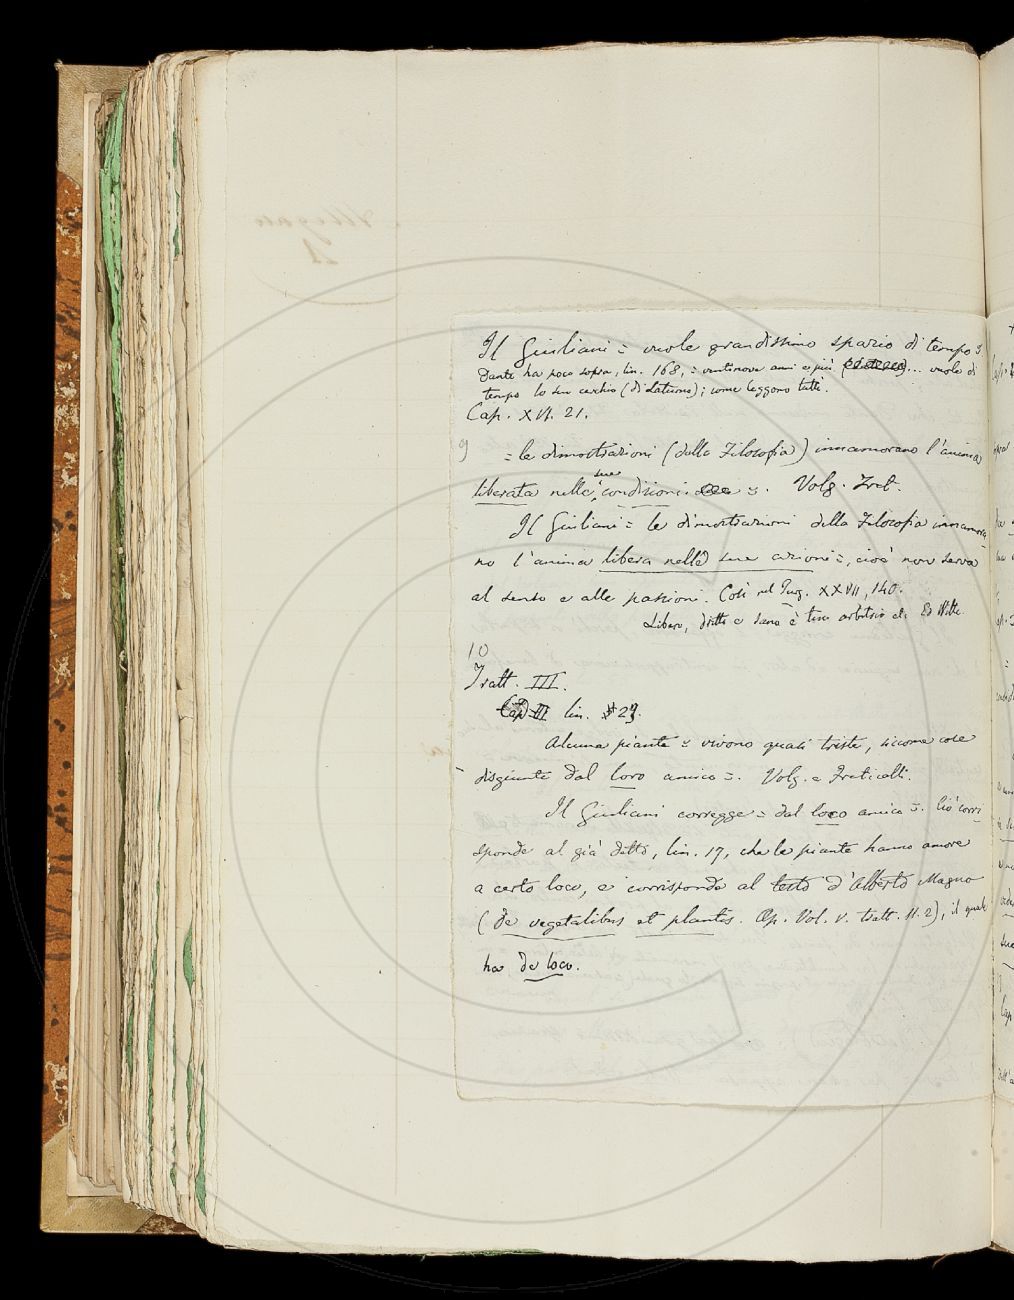 Il Giuliani = vuole grandissimo spazio di tempo =
Dante ha poco sopra, lin. 168, = ventinove anni e più ... vuole di
tempo lo suo cerchio (di Saturno); come leggono tutti.
Cap. XVI. 21.
9
= le dimostrazioni (della Filosofia) innamorano l'anima
liberata nelle sue condizioni =. Volg. Frat.
Il Giuliani = le dimostrazioni della Filosofia innamora-
no l'anima libera nelle sue azioni =, cioè non serva
al senso e alle passioni. Così nel Purg. XXVII, 140.
Libero, dritto e sano è tuo arbitrio. Ed Witte.
10
Tratt. III.
Cap III lin. 29.
Alcuna piante = vivono quasi triste, siccome cose
disgiunte dal loro amico =. Volg. e Fraticelli.
Il Giuliani corregge = dal loco amico =. Ciò corri-
sponde al già detto, lin. 17, che le piante hanno amore
a certo loco, e corrisponde al testo d'Alberto Magno
(De vegetalibus et plantis. Op. Vol. V. tratt. II. 2), il quale
ha de loco.